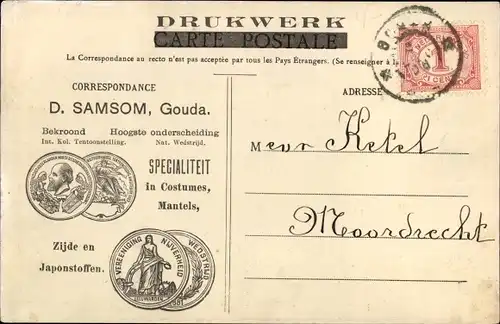 DRUKWERK
CARTE POSTALE
(La Correspondance au recto n'est pas acceptée par tous les Pays Étrangers. (Se renseigner à
CORRESPONDANCE
D. SAMSOM, Gouda.
Bekroond Hoogste onderscheiding
Int. Kol. Tentoonstelling. Nat. Wedstrijd.
SPECIALITEIT
in Costumes,
Mantels,
Zijde en
Japonstoffen.
VEREENIGING NIJVERHEID
WEDSTRIJD
ADRESSE
1
CENT
Mevr Ketel
Moordrecht